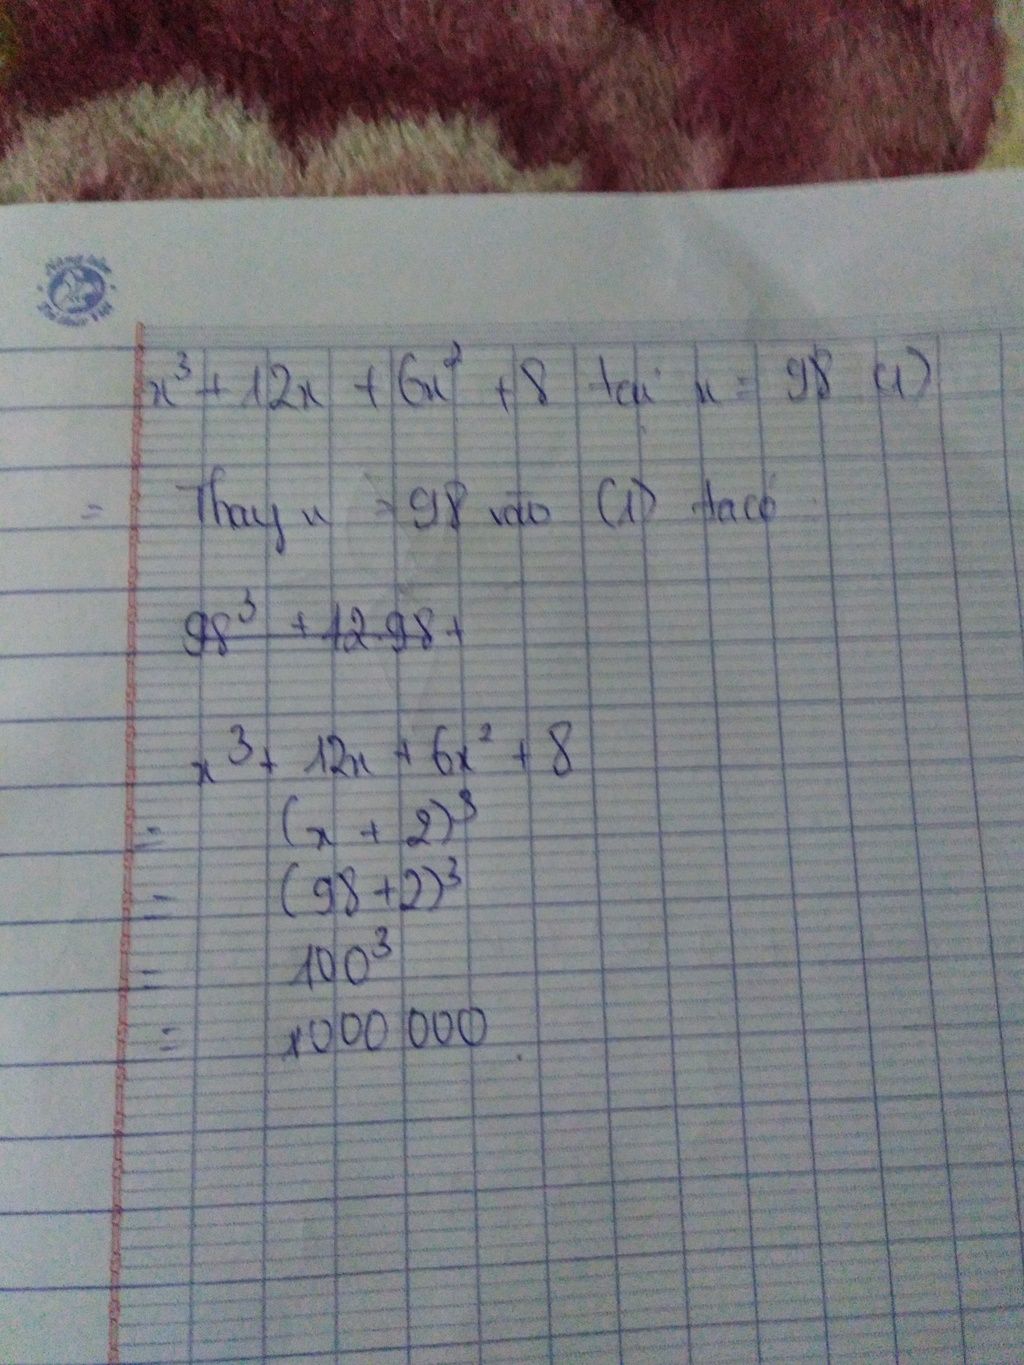 x³ + 12x + 6x² + 8 tại x = 98 (1)
= Thay x = 98 vào (1) ta có
98³ + 12.98 +
x³ + 12x + 6x² + 8
= (x + 2)³
= (98 + 2)³
= 100³
= 1000 000